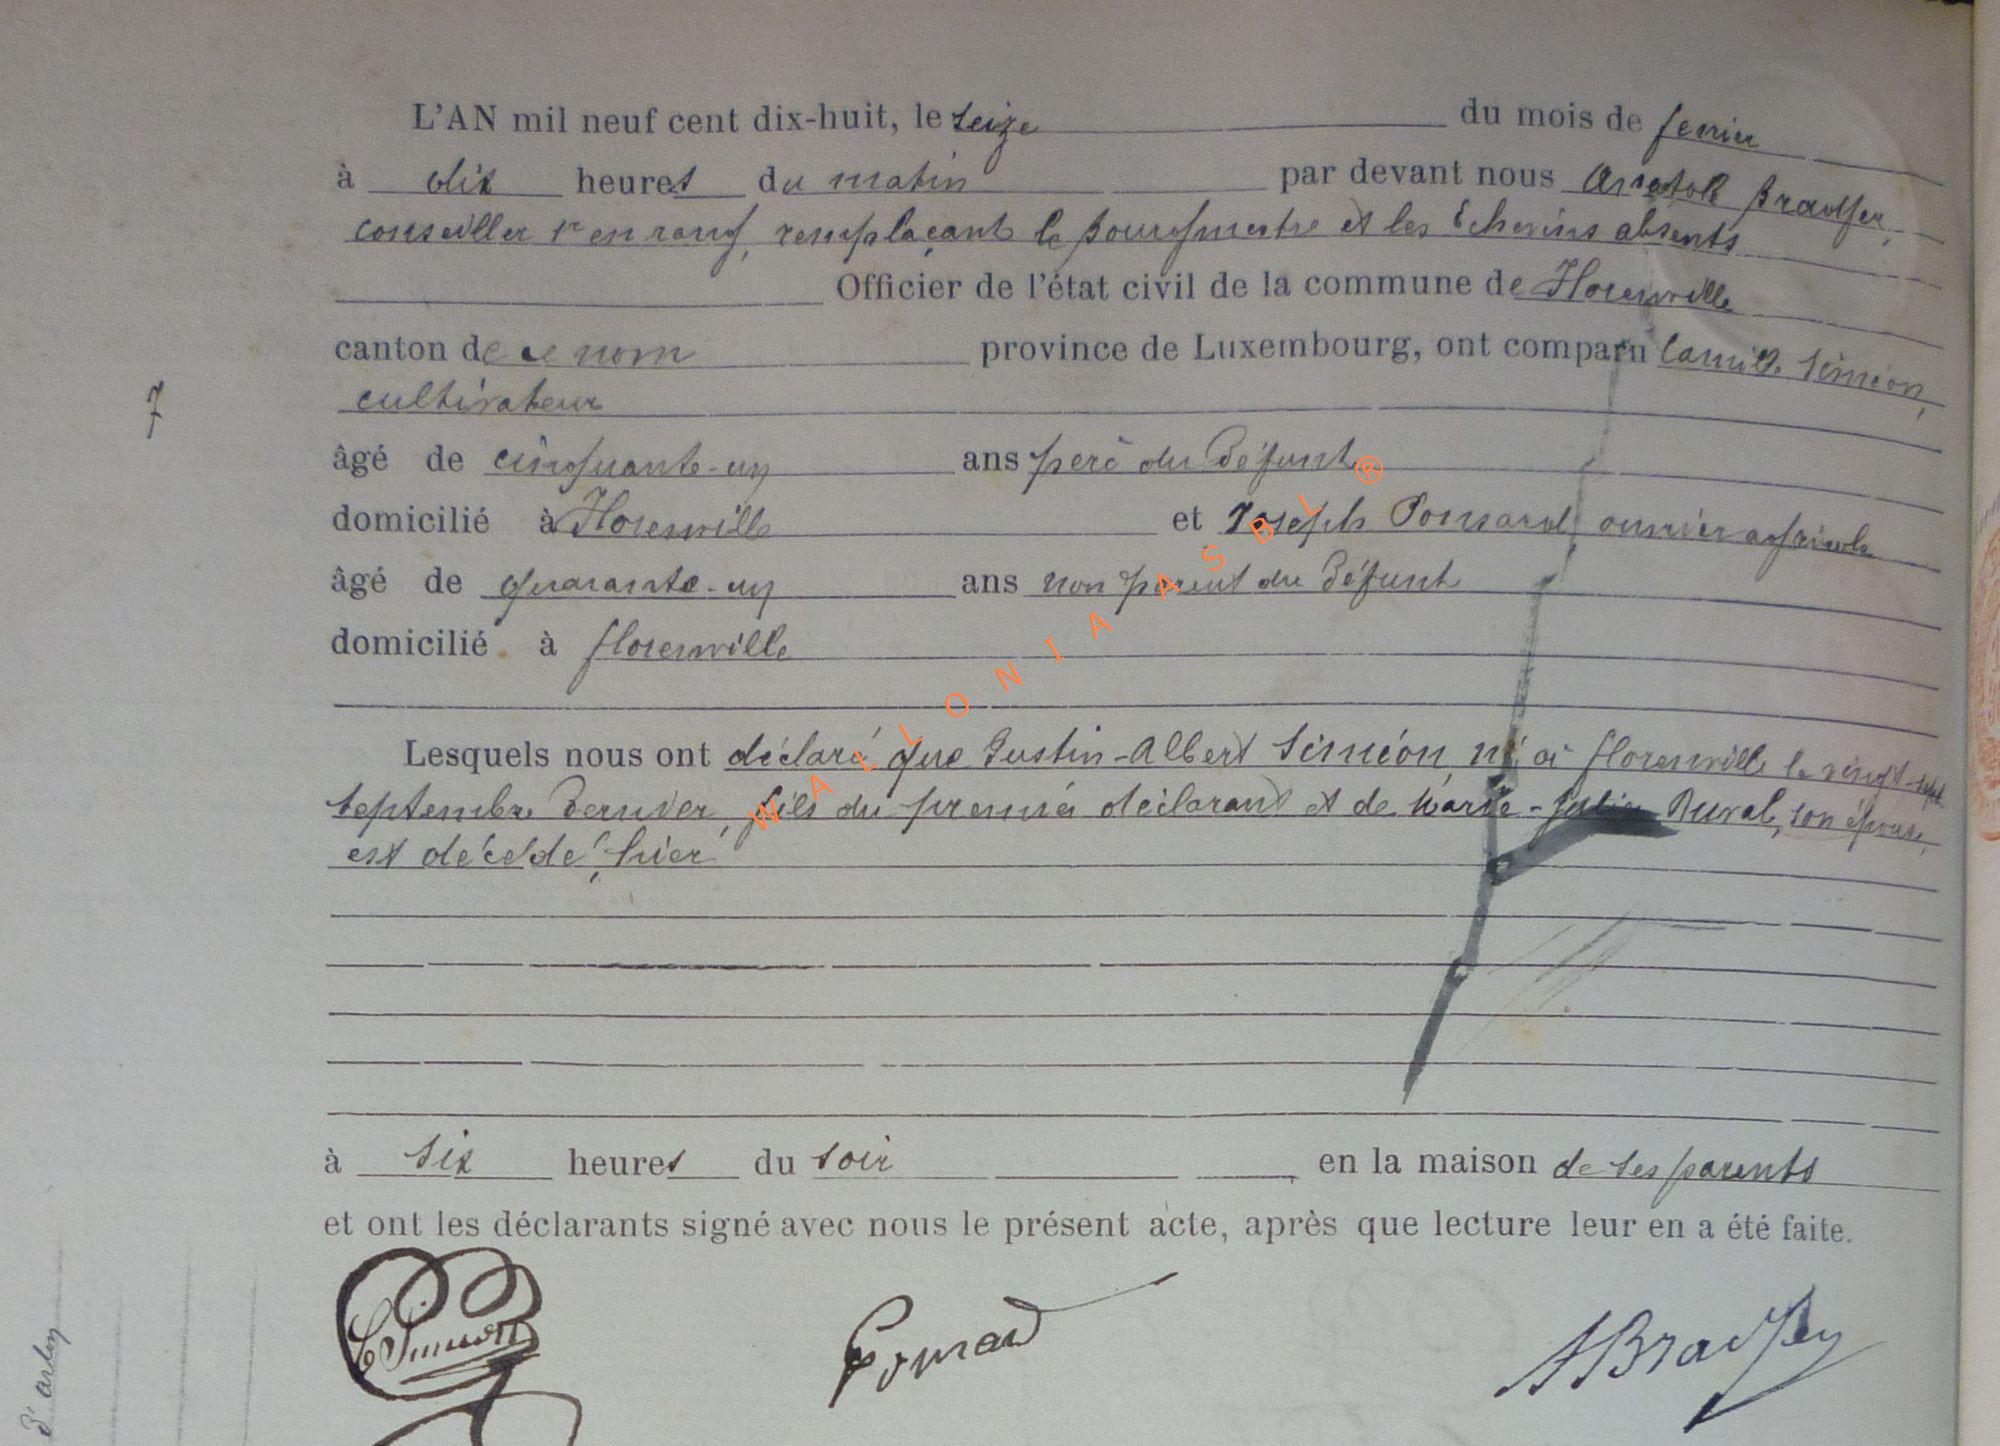 L'AN mil neuf cent dix-huit, le seize du mois de fevrier
à dix heures du matin par devant nous Anatole
conseiller 1er en rang, remplaçant le Bourgmestre et les Echevins absents
Officier de l'état civil de la commune de Florenville
canton de ce nom province de Luxembourg, ont comparu Camille Siméon,
cultivateur
7
âgé de cinquante-un ans père du défunt
domicilié à Florenville et Joseph Ponsard ouvrier agricole
âgé de quarante-un ans non parent du défunt
domicilié à florenville
Lesquels nous ont déclaré que Justin-Albert Siméon, né à florenville le vingt-sept
septembre dernier, fils du premier déclarant et de Marie- Duval, son épouse,
est décédé, hier
à six heures du soir en la maison de ses parents
et ont les déclarants signé avec nous le présent acte, après que lecture leur en a été faite.
C Siméon Ponsard
d'arlon
WALLONIA ASBL ®